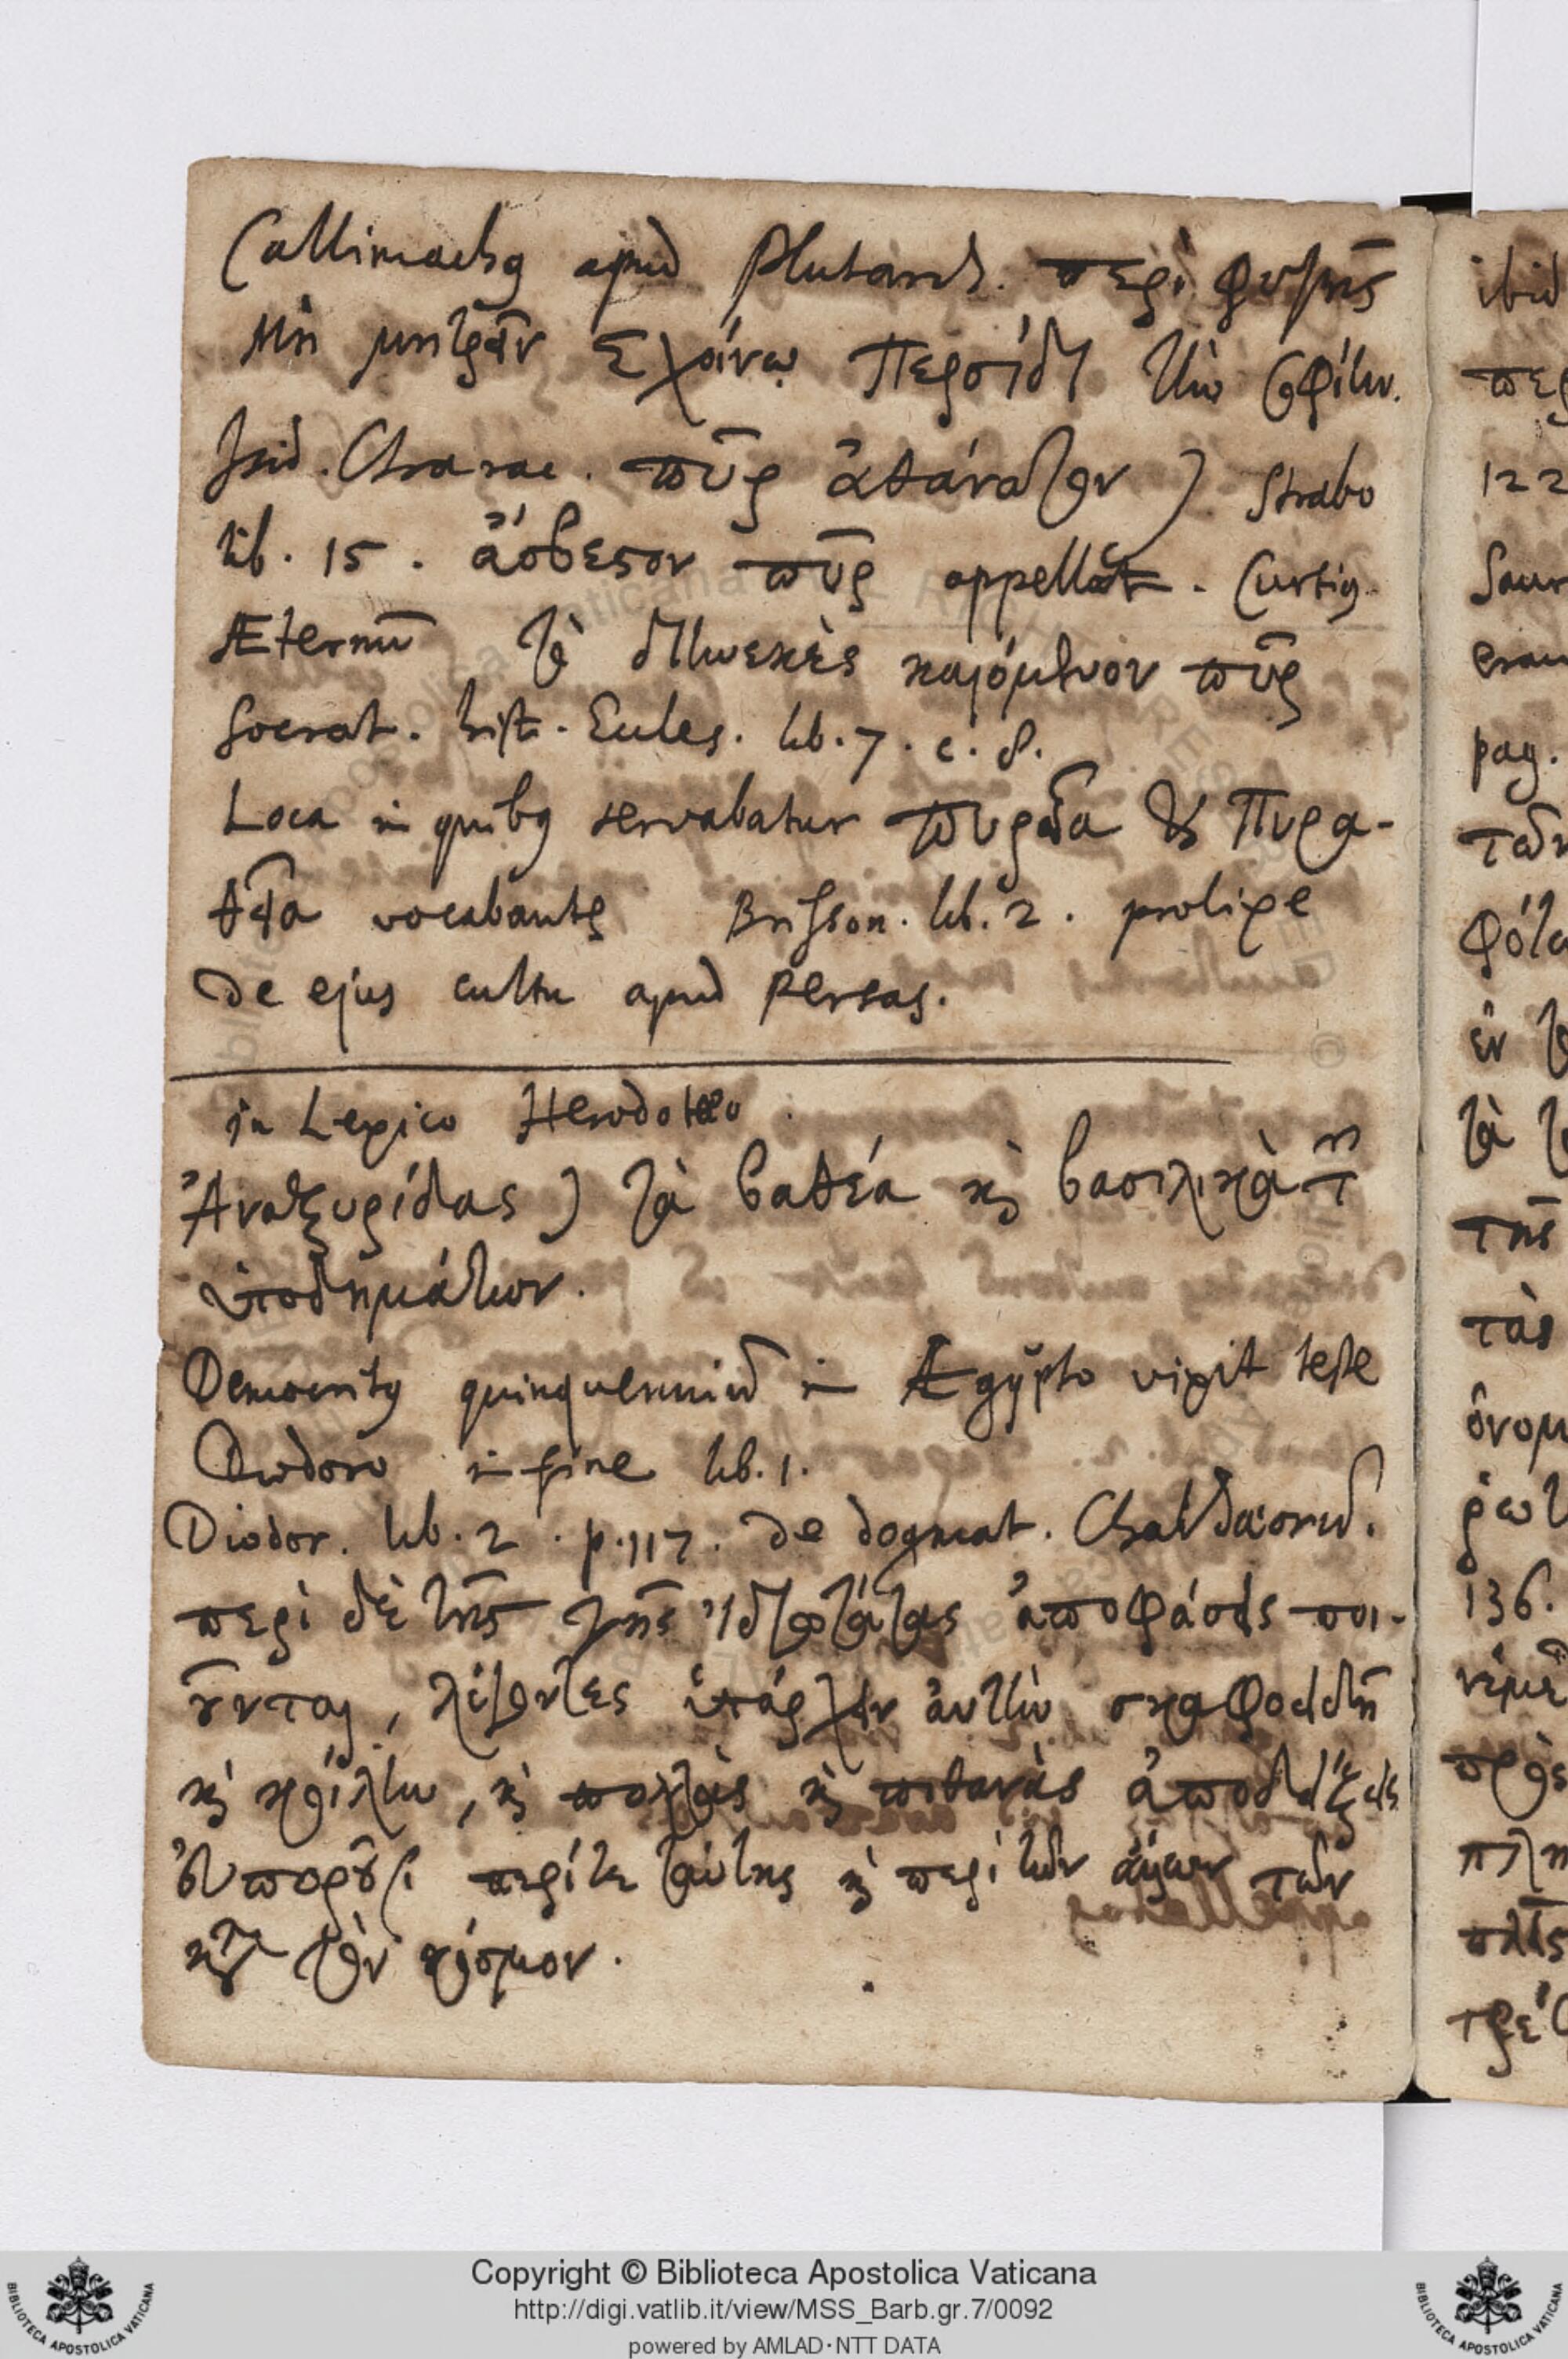 Callimachꝯ apud Plutarch. περὶ φυγῆς
Μὴ μετρεῖν Σχοίνῳ Περσίδι τὴν σοφίην.
Isid. Charac. πῦρ ἀθάνατον) Strabo
lib. 15. ἄσβεστον πῦρ appellat. Curtiꝯ
Æternū τὸ διηνεκὲς καιόμενον πῦρ
Socrat. hist. Eccles. lib. 7. c. 8.
Loca in quibꝯ servabatur πυρεῖα & Πυρα-
θεῖα vocabantur Brisson. lib. 2. prolixe
de ejus cultu apud Persas.
in Lexico Herodoteo
Ἀναξυρίδας) τὰ βαθέα καὶ βασιλικὰ τῶν
ὑποδημάτων.
Democritꝯ quinquenniū in Ægypto vixit teste
Diodoro in fine lib. 1.
Diodor. lib. 2. p. 117. de dogmat. Chaldæorū.
περὶ δὲ τῆς γῆς ἰδιωτάτας ἀποφάσεις ποι-
οῦνται, λέγοντες ὑπάρχειν αὐτὴν σκαφοειδῆ
καὶ κοίλην, καὶ πολλὰς καὶ πιθανὰς ἀποδείξεις
εὐποροῦσι περί τε ταύτης καὶ περὶ τῶν ἄλλων τῶν
κατὰ τὸν κόσμον.
ibid
περ
122
Saur
eran
pag.
τῶν
ἐν
τὰ
τῆς
τὰς
ὀνομ
136.
Copyright © Biblioteca Apostolica Vaticana
http://digi.vatlib.it/view/MSS_Barb.gr.7/0092
powered by AMLAD·NTT DATA
BIBLIOTECA APOSTOLICA VATICANA
BIBLIOTECA APOSTOLICA VATICANA